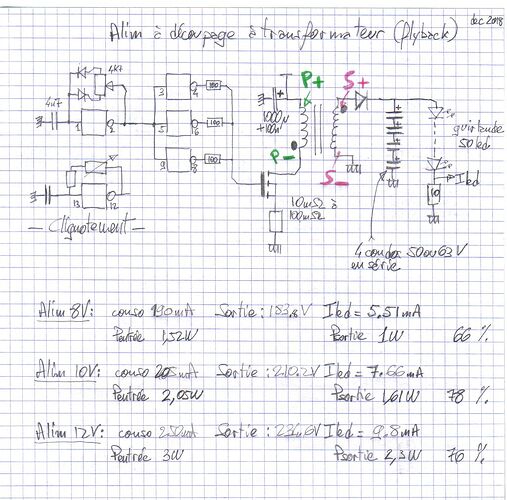 dec 2018
Alim à découpage à transformateur (flyback)
4K7
4n7
1 2
3 4 100
5 6 100
9 8 100
1000µ
+100n
P+
S+
P-
S-
guirlande
50 led
Iled
10
10mΩ à
100mΩ
13 12
— Clignotement —
4 condos 50 ou 63V
en série
Alim 8V: conso 190mA Sortie: 183,8V Iled = 5.51mA
Pentrée 1,52W Psortie 1W 66 %
Alim 10V: conso 205mA Sortie: 210.2V Iled = 7.66mA
Pentrée 2,05W Psortie 1,61W 78 %
Alim 12V: conso 250mA Sortie: 234,6V Iled = 9.8mA
Pentrée 3W Psortie 2,3W 76 %